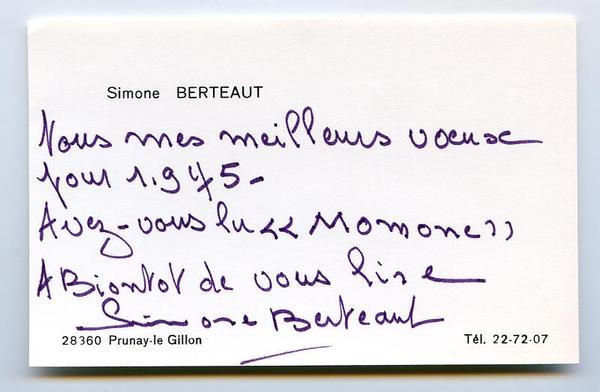 Simone BERTEAUT
Tous mes meilleurs voeux
pour 1.975-
Avez-vous lu << Momone >>
A Biontot de vous lire
Simone Berteaut
28360 Prunay-le Gillon Tél. 22-72-07